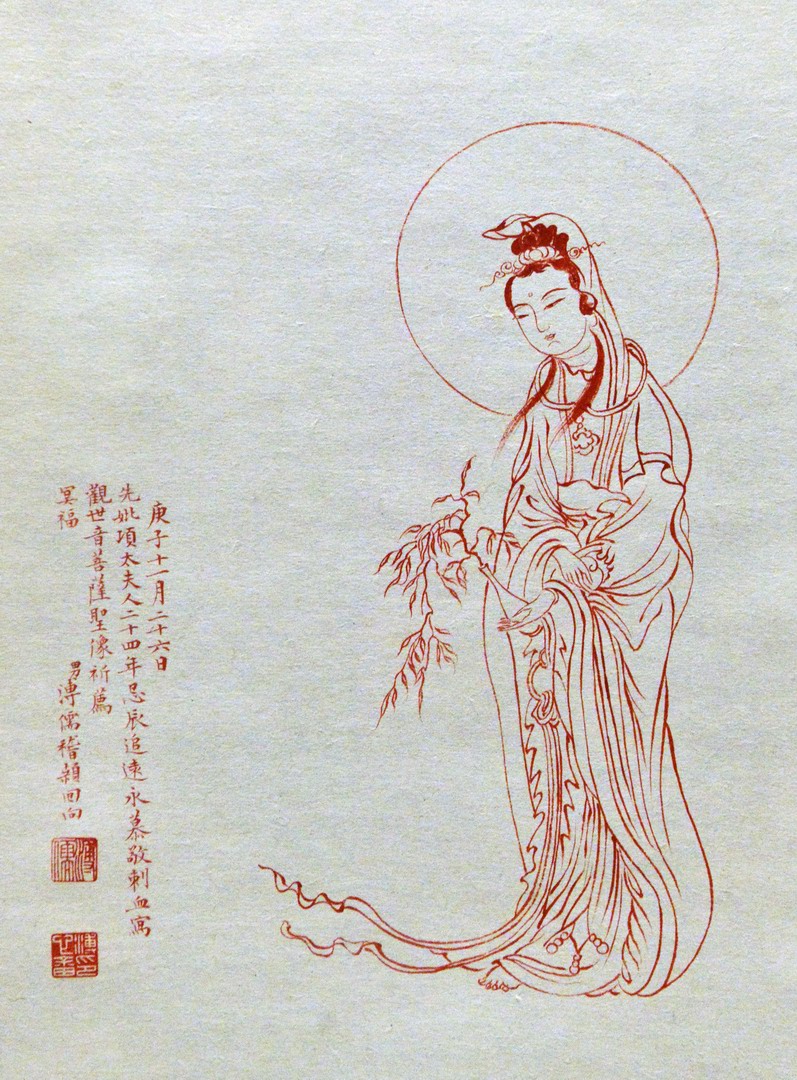 庚子十一月二十六日
先妣項太夫人二十四年忌辰追遠永慕敬刺血寫
觀世音菩薩聖像祈薦
冥福
男溥儒稽顙回向
溥儒